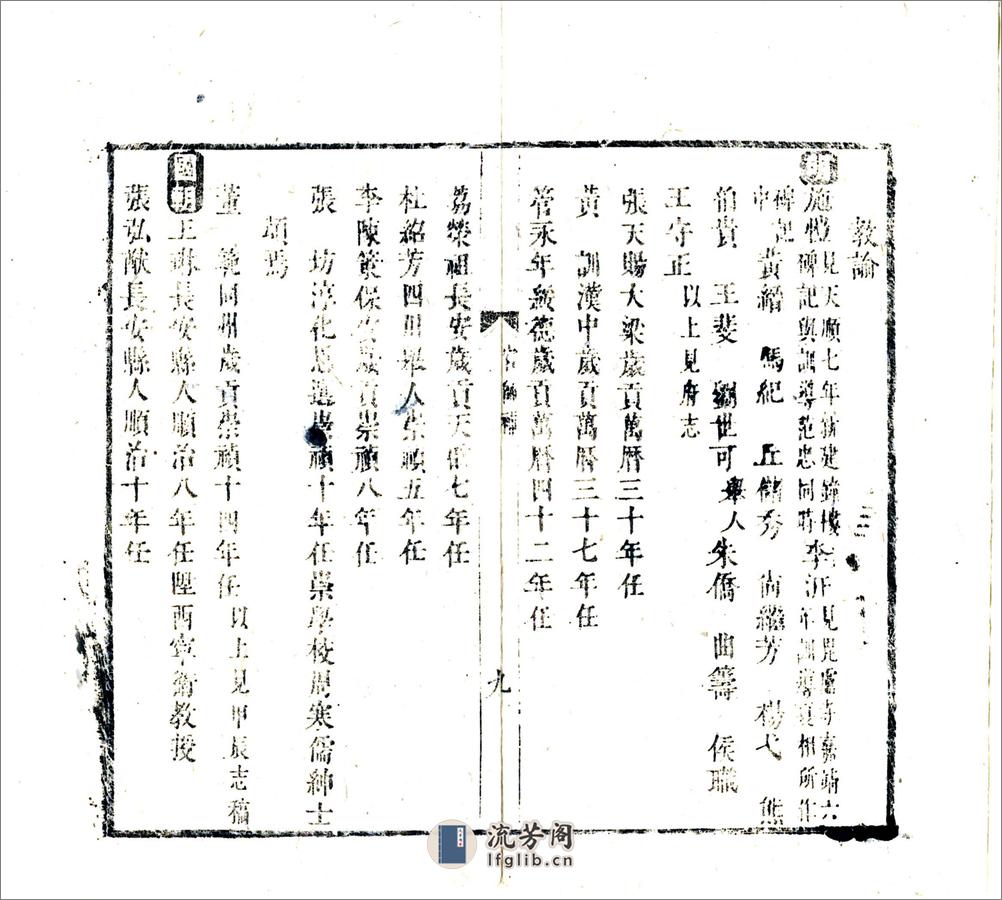 教諭
明 施 見天順七年新建鐘樓碑記與訓導范忠同時 李 正見毘盧寺嘉靖六年訓導 相所作
碑記 黃縉 馬紀 丘儲秀 尚繼芳 楊弋 熊
伯貴 王斐 劉世可 舉人 朱僑 曲籌 侯職
王守正 以上見府志
張天賜大梁歲貢萬曆三十年任
黃 訓漢中歲貢萬曆三十七年任
管永年綏德歲貢萬曆四十二年任
九
芶榮祖長安歲貢天啓七年任
杜紹芳四川舉人崇禎五年任
李陳策保安歲貢崇禎八年任
張 坊淳化恩進崇禎十年任崇學校周寒儒紳士
頌焉
董 範同州歲貢崇禎十四年任 以上見甲辰志稿
國朝 王 長安縣人順治八年任陞西寧衛教授
張弘猷長安縣人順治十年任
流芳阁
lfglib.cn